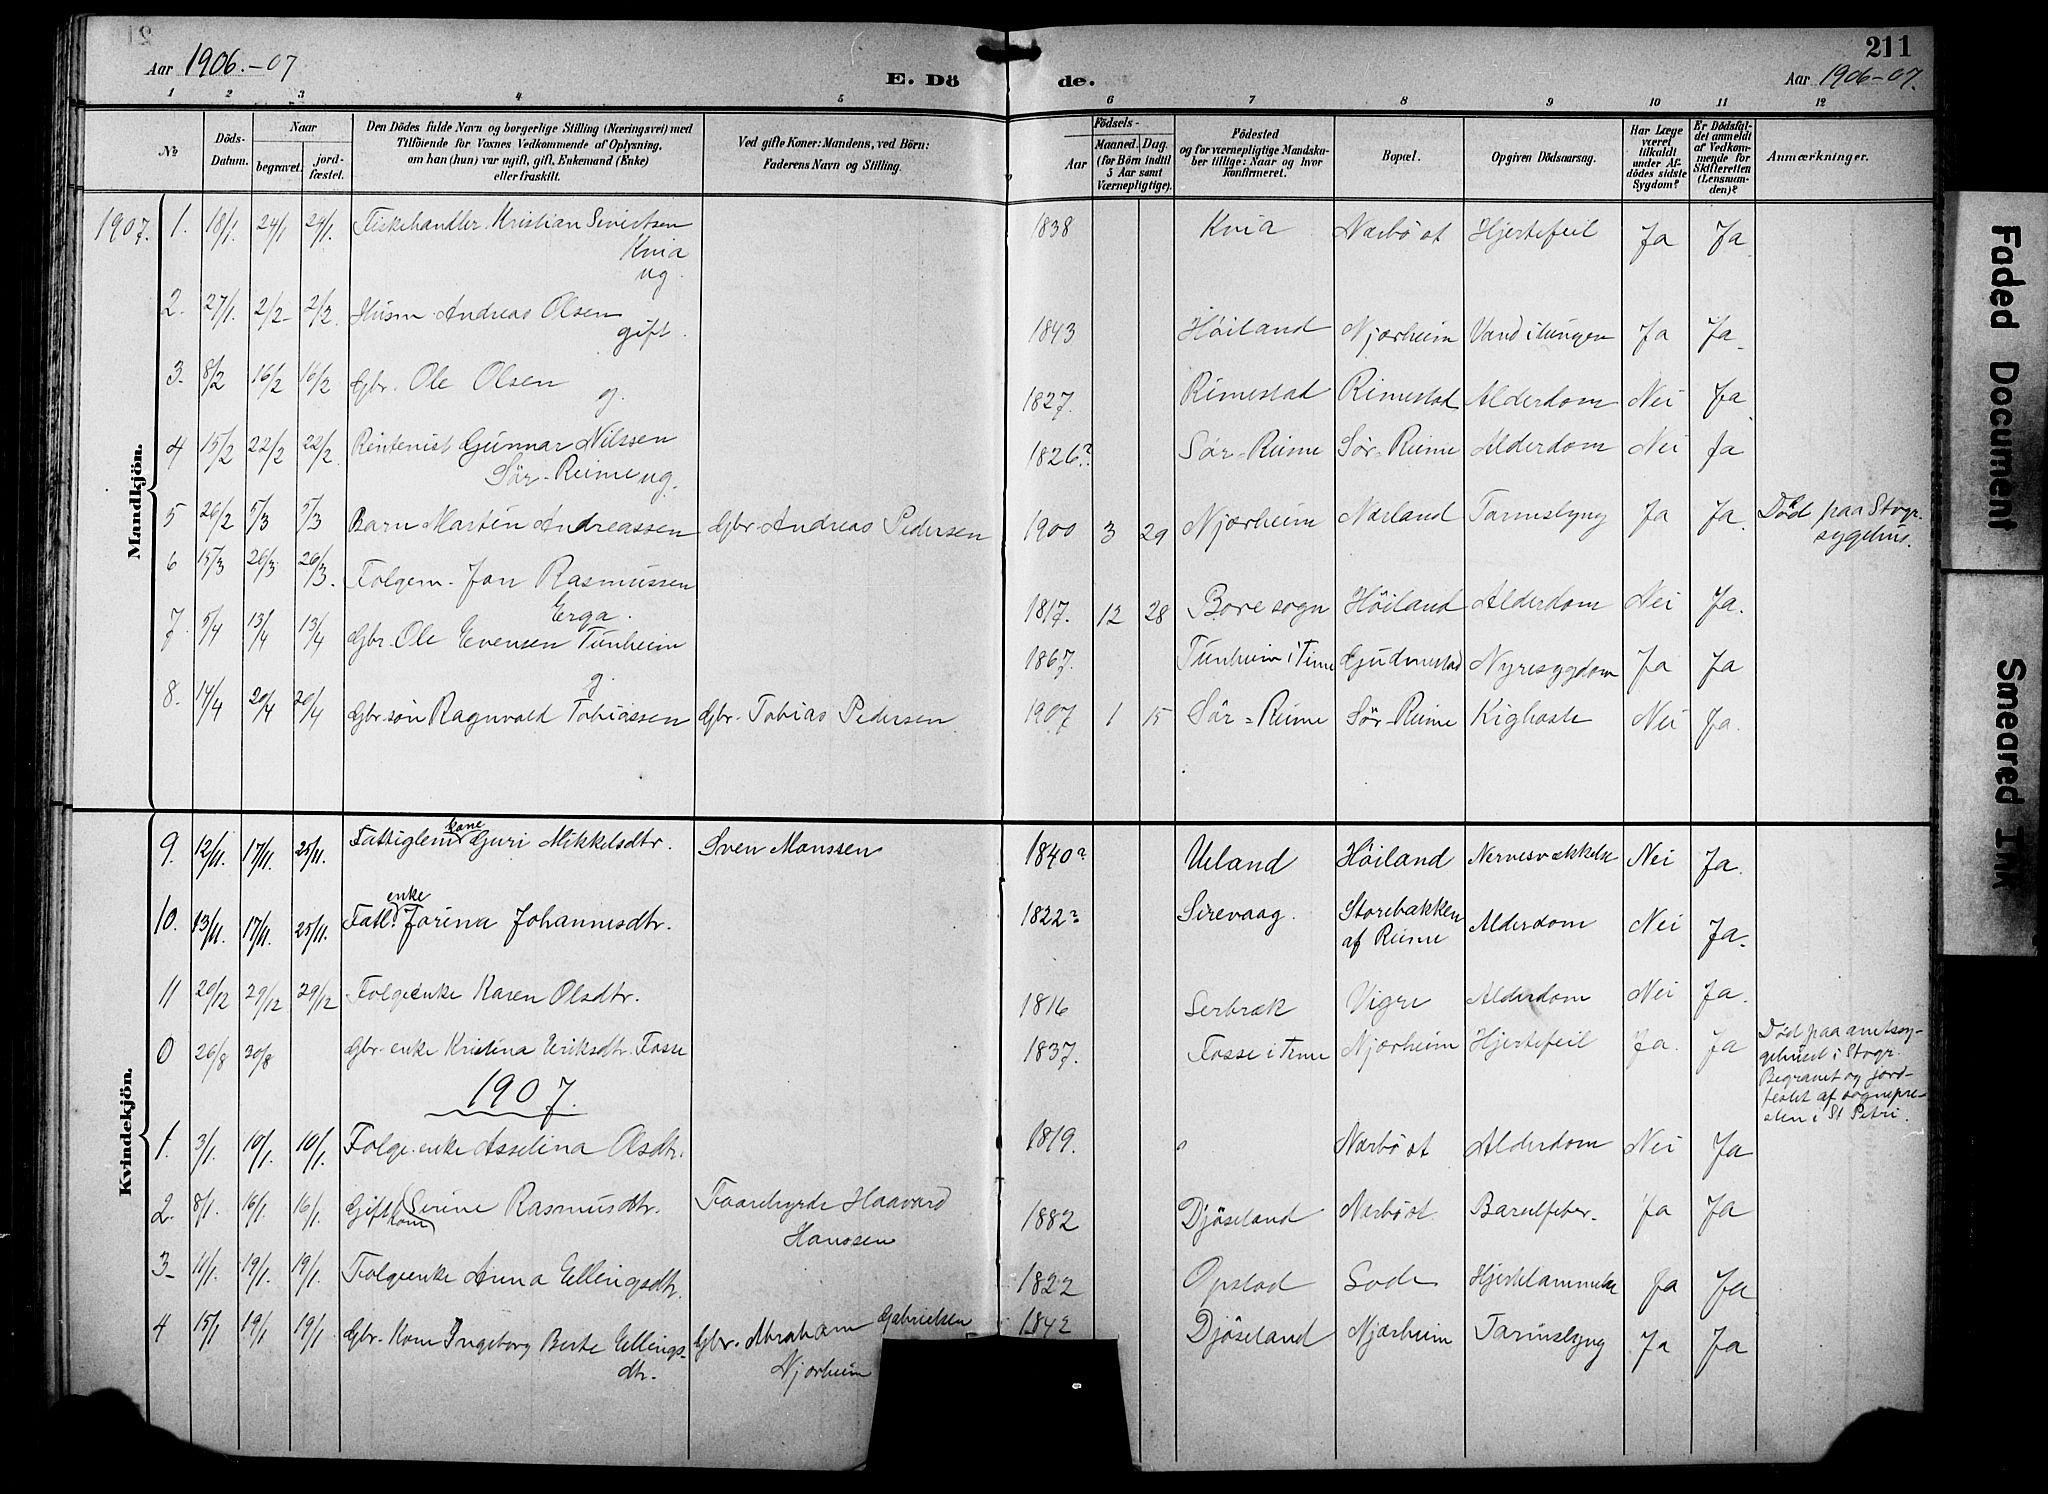 Aar 1906.-07
E. Dö
de.
211
Aar 1906-07.
1 2 3 4 5 6 7 8 9 10 11 12
No
Döds-Datum.
Naar
begravet.
jord-fæstet.
Den Dödes fulde Navn og borgerlige Stilling (Næringsvei) med
Tilföiende for Voxnes Vedkommende af Oplysning,
om han (hun) var ugift, gift, Enkemand (Enke)
eller fraskilt.
Ved gifte Koner: Mandens, ved Börn:
Faderens Navn og Stilling.
Födsels-
Aar
Maaned. Dag.
(for Börn indtil
5 Aar samt
Værnepligtige).
Födested
og for værnepligtige Mandska-
ber tillige: Naar og hvor
konfirmeret.
Bopæl.
Opgiven Dödsaarsag.
Har Læge
været
tilkaldt
under Af-
dödes sidste
Sygdom?
Er Dödsfal-
det anmeldt
af Vedkom-
mende for
Skifteretten
(Lensman-
den)?
Anmærkninger.
Mandkjön.
1907. 1. 18/1. 24/1 24/1. Fiskehandler Kristian Sivertsen 1838 Kvia Nærbö st Hjertefeil Ja Ja
Kvia
ug.
2. 27/1. 2/2 2/2. Husm. Andreas Olsen 1843 Höiland Njærheim Vand i lungen Ja Ja
gift.
3. 8/2 16/2 16/2 Gbr. Ole Olsen 1827. Rimestad Rimestad Alderdom Nei Ja
g.
4 15/2 22/2 22/2. Rentenist Gunnar Nilssen 1826? Sör-Reime Sör-Reime Alderdom Nei Ja
Sör-Reime ug.
5 26/2 5/3 5/3 Barn Martin Andreassen Gbr. Andreas Pedersen 1900 3 29 Njærheim Nærland Tarmslyng Ja Ja. Död paa Stvgr.
sygehus.
6 15/3 26/3 26/3. Folgem. Jon Rasmussen 1817. 12 28 Bore sogn Höiland Alderdom Nei Ja.
Erga.
7. 5/4 13/4 13/4 Gbr. Ole Evensen Tunheim 1867. Tunheim i Time Gudmestad Nyresygdom Ja Ja
g.
8. 14/4 20/4 20/4 Gbr. sön Ragnvald Tobiassen Gbr. Tobias Pedersen 1907 1 15 Sör-Reime Sör-Reime Kighoste Nei Ja.
Kvindekjön.
9. 12/11. 17/11. 25/11. Fattiglem kone Guri Mikkelsdtr. Sven Monssen 1840? Ueland Höiland Nervesvækkelse Nei Ja.
10. 13/11. 17/11. 25/11. Fatl. enke Jorina Johannesdtr. 1822? Sirevaag. Storebakken
af Reime Alderdom Nei Ja.
11 20/12 29/12 29/12 Folgeenke Karen Olsdtr. 1816 Serbræk Vigre Alderdom Nei Ja.
0 26/8 30/8 Gbr. enke Kristina Eriksdtr. Fosse 1837. Fosse i Time Njærheim Hjertefeil Ja. Ja Död paa amtssy-
gehuset i Stvgr.
Begravet og jord-
festet af sognepre-
sten i St Petri.
1907.
1. 3/1. 10/1. 10/1. Folge.enke Asselina Olsdtr. 1819. Nærbö st Alderdom Nei Ja
2. 8/1. 16/1. 16/1. Gift kone Serine Rasmusdtr. Faarehyrde Haavard
Hanssen 1882 Djöseland Nærbö st. Barselfeber. Ja Ja
3- 11/1. 19/1. 19/1. Folgeenke Anna Ellingsdtr. 1822 Opstad Hjertelammelse Ja Ja
4 15/1 19/1 19/1 Gbr. Kone Ingeborg Berte Ellings-
dtr. Gbr. Abraham Gabrielsen
Njærheim 1842 Djöseland Njærheim Tarmslyng Ja Ja
Faded Document
Smeared Ink